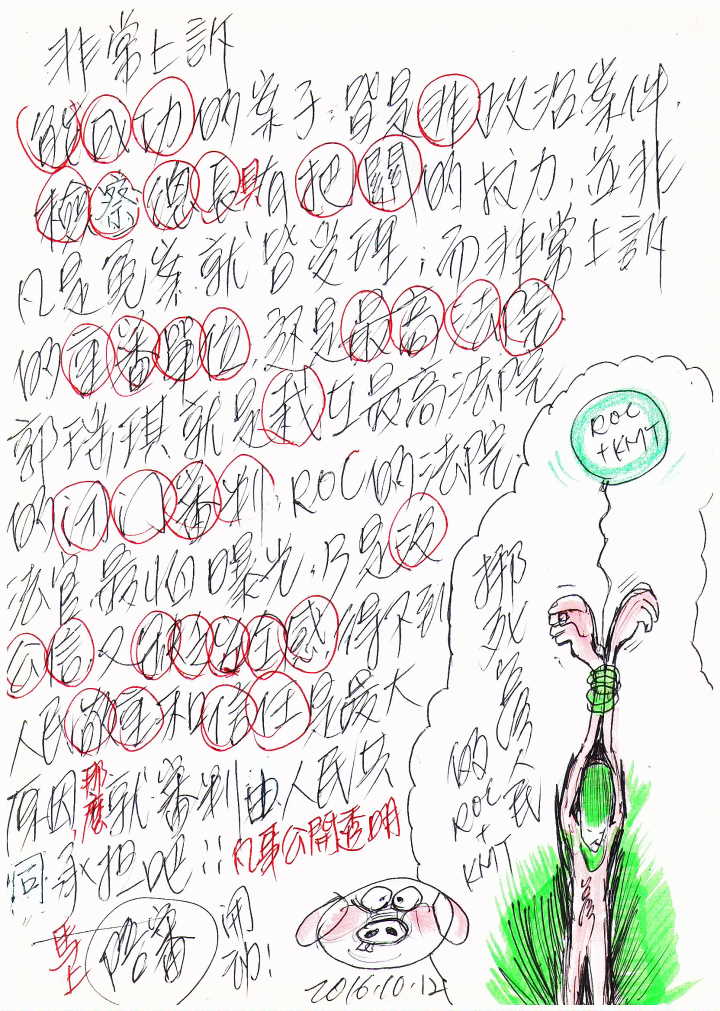 非常上訴
能成功的案子:皆是非政治案件.
檢察總長具有把關的拉力,並非
凡是冤案就皆受理;而非常上訴
的審單位,就是最高法院
郭瑞琪就是栽在最高法院
的閉門審判:ROC的法院.
法官最怕曝光,只是沒
公信.又感得不到
人民敬重和信任是最大
原因,那麼就審判由人民共
同承担吧!!凡事公開透明
馬上陪審開動!
2016.10.12
ROC
+KMT
人民
的ROC
+
KMT